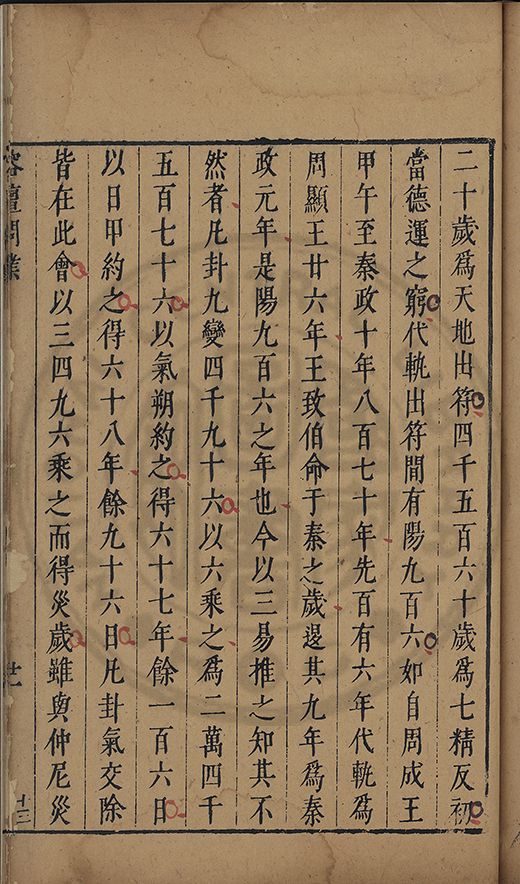 二十歲爲天地出符四千五百六十歲爲七精反初
當德運之窮代軌出符間有陽九百六如自周成王
甲午至秦政十年八百七十年先百有六年代軌爲
周顯王廿六年王致伯命于秦之歲退其九年爲秦
政元年是陽九百六之年也今以三易推之知其不
然者凡卦九變四千九十六以六乘之爲二萬四千
五百七十六以氣朔約之得六十七年餘一百六日
以日甲約之得六十八年餘九十六日凡卦氣交除
皆在此會以三四九六乘之而得災歲雖與仲尼災
榕壇問業
廿一
十三